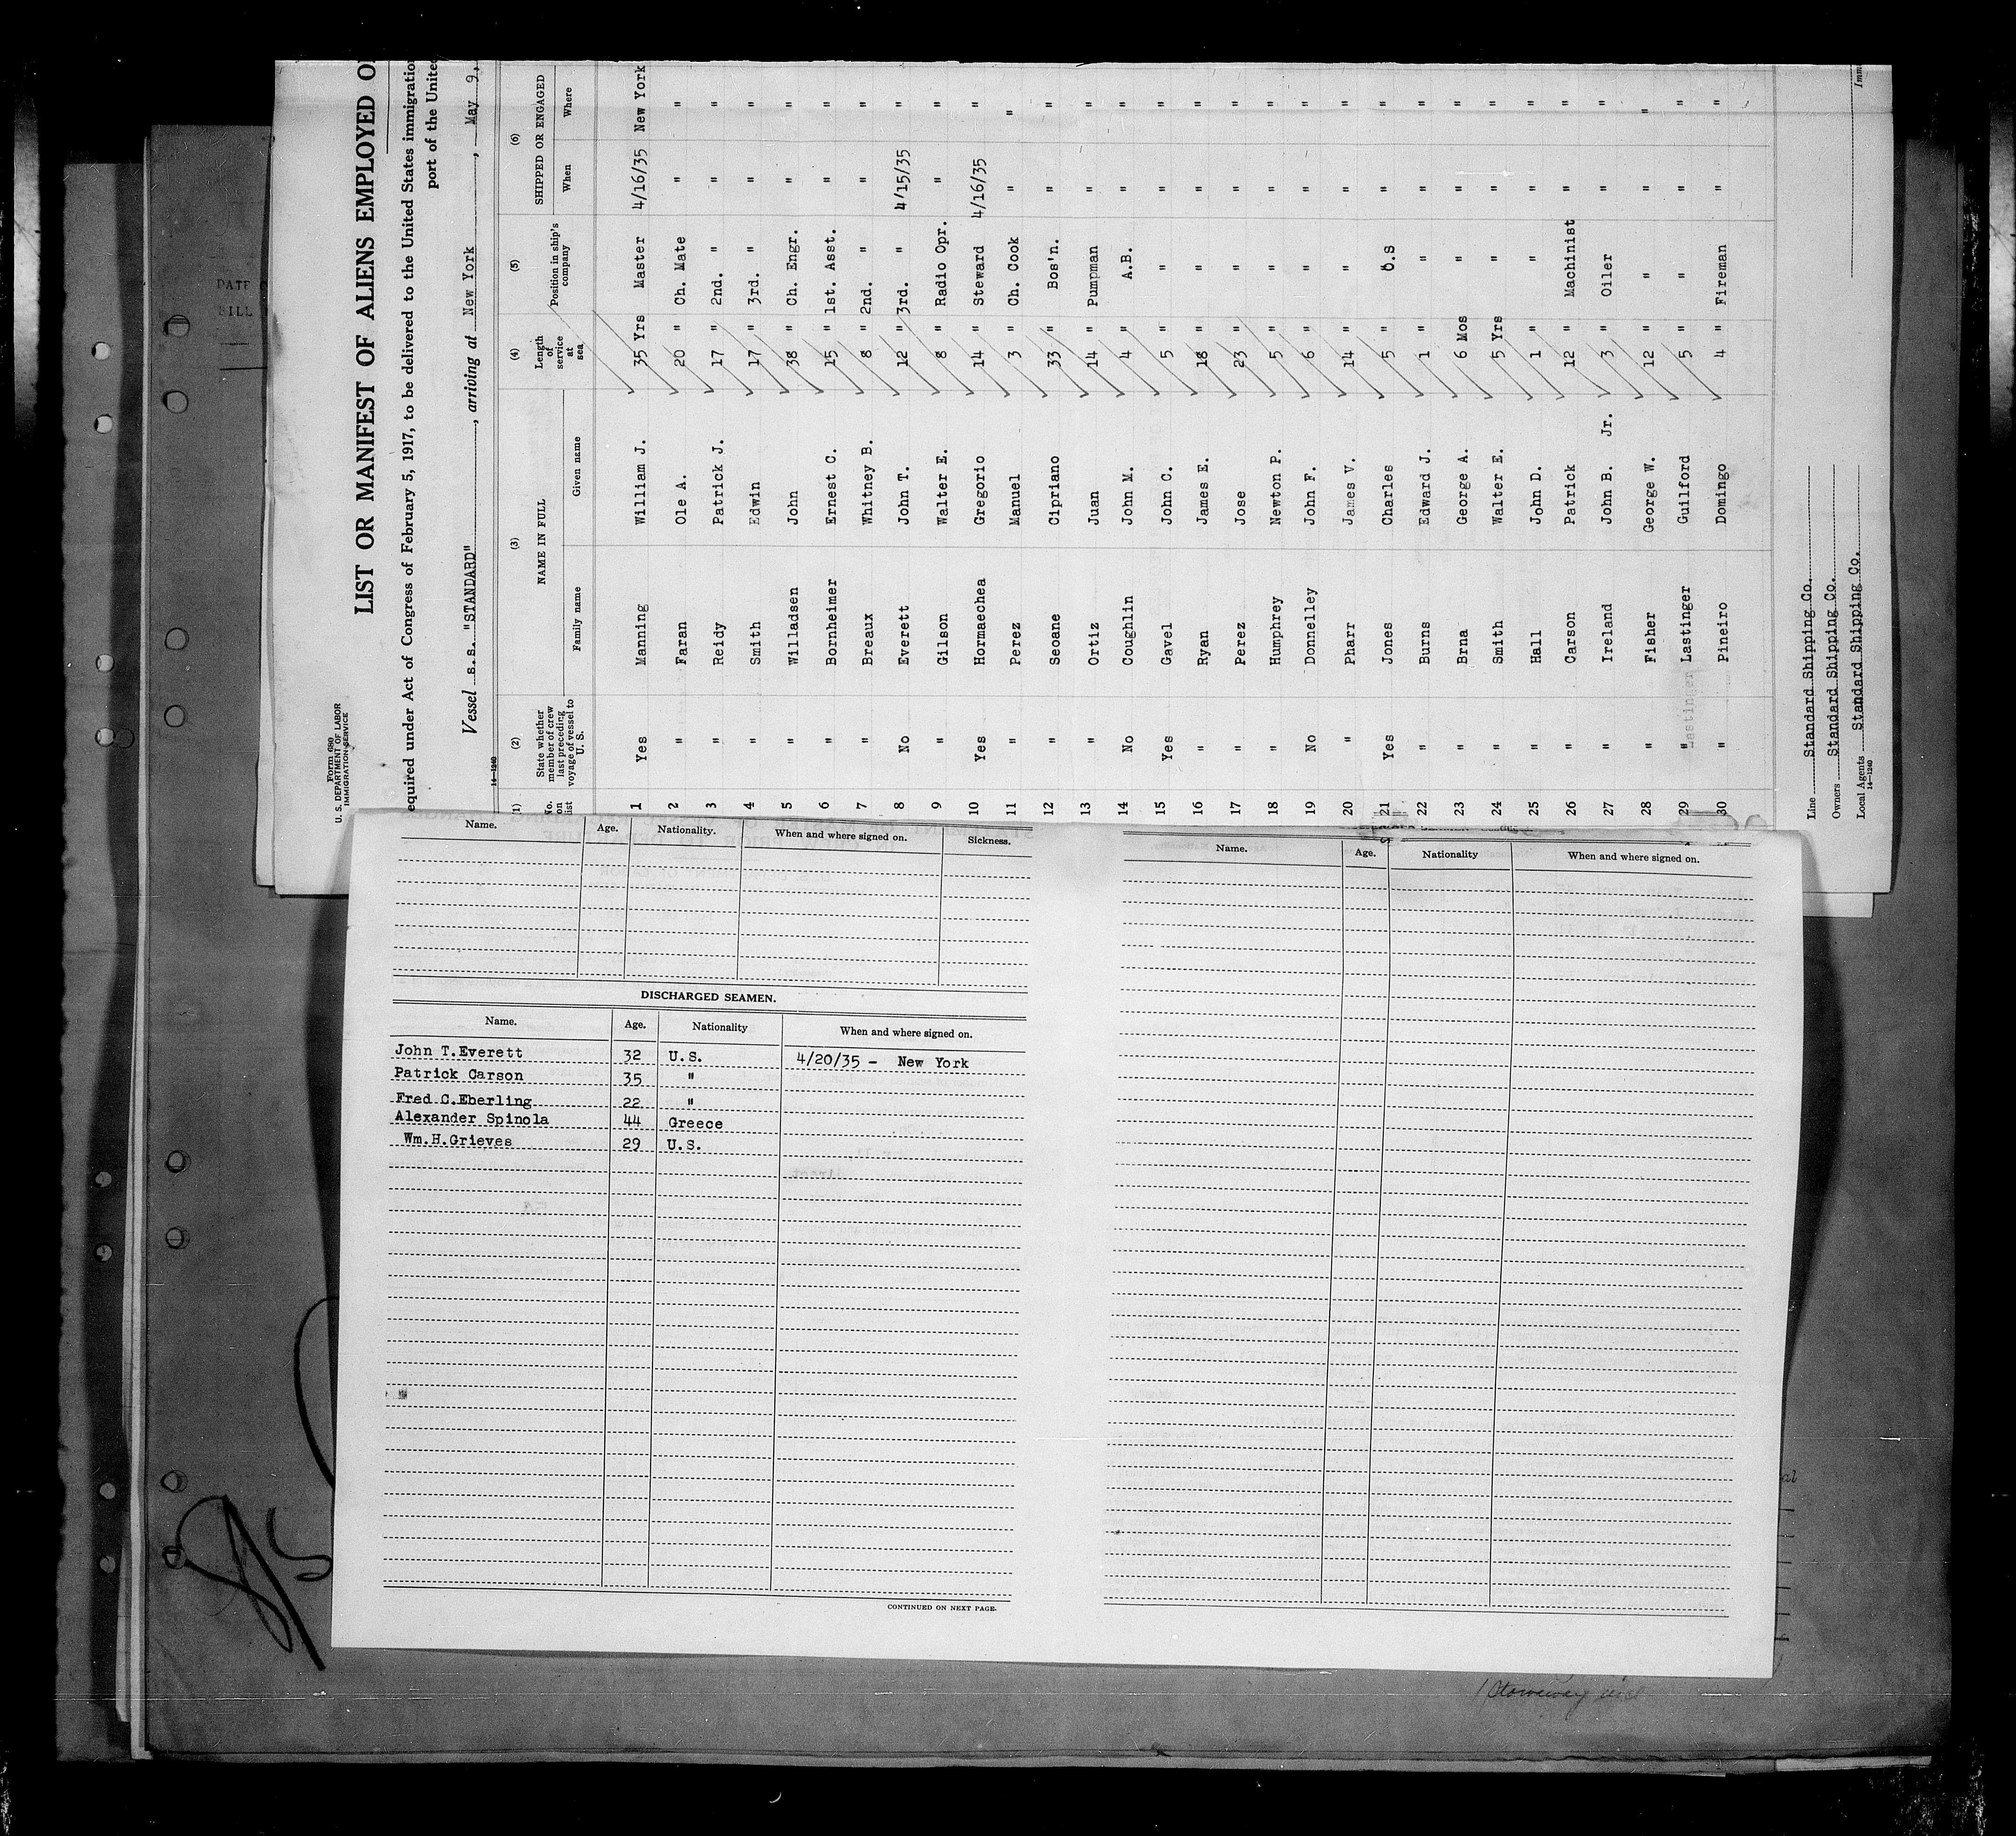 Form 680
U. S. DEPARTMENT OF LABOR
IMMIGRATION SERVICE
LIST OR MANIFEST OF ALIENS EMPLOYED O
equired under Act of Congress of February 5, 1917, to be delivered to the United States immigration
port of the United
Vessel s.s. "STANDARD", arriving at New York, May 9,
14—1240
(1) (2) (3) (4) (5) (6)
No. on list State whether member of crew last preceding voyage of vessel to U. S. NAME IN FULL Length of service at sea Position in ship's company SHIPPED OR ENGAGED
Family name Given name When Where
1 Yes Manning William J. 35 Yrs Master 4/16/35 New York
2 " Faran Ole A. 20 " Ch. Mate " "
3 " Reidy Patrick J. 17 " 2nd. " " "
4 " Smith Edwin 17 " 3rd. " " "
5 " Willadsen John 38 " Ch. Engr. " "
6 " Bornheimer Ernest C. 15 " 1st. Asst. " "
7 " Breaux Whitney B. 8 " 2nd. " " "
8 No Everett John T. 12 " 3rd. " 4/15/35 "
9 " Gilson Walter E. 8 " Radio Opr. " "
10 Yes Hormaechea Gregorio 14 " Steward 4/16/35 "
11 " Perez Manuel 3 " Ch. Cook " "
12 " Seoane Cipriano 33 " Bos'n. " "
13 " Ortiz Juan 14 " Pumpman " "
14 No Coughlin John M. 4 " A.B. " "
15 Yes Gavel John C. 5 " " " "
16 " Ryan James E. 18 " " " "
17 " Perez Jose 23 " " " "
18 " Humphrey Newton P. 5 " " " "
19 No Donnelley John F. 6 " " " "
20 " Pharr James V. 14 " " " "
21 Yes Jones Charles 5 " O.S " "
22 " Burns Edward J. 1 " " " "
23 " Brna George A. 6 Mos " " "
24 " Smith Walter E. 5 Yrs " " "
25 " Hall John D. 1 " " " "
26 " Carson Patrick 12 " Machinist " "
27 " Ireland John B. Jr. 3 " Oiler " "
28 " Fisher George W. 12 " " " "
29 " Lastinger Guilford 5 " " " "
30 " Pineiro Domingo 4 " Fireman " "
Line Standard Shipping Co.
Owners Standard Shipping Co.
Local Agents Standard Shipping Co.
14—1240
Imm
DATE
BILL
Name. Age. Nationality. When and where signed on. Sickness.
DISCHARGED SEAMEN.
Name. Age. Nationality When and where signed on.
John T.Everett 32 U.S. 4/20/35 - New York
Patrick Carson 35 "
Fred C.Eberling 22 "
Alexander Spinola 44 Greece
Wm.H.Grieves 29 U.S.
CONTINUED ON NEXT PAGE.
Name. Age. Nationality When and where signed on.
al